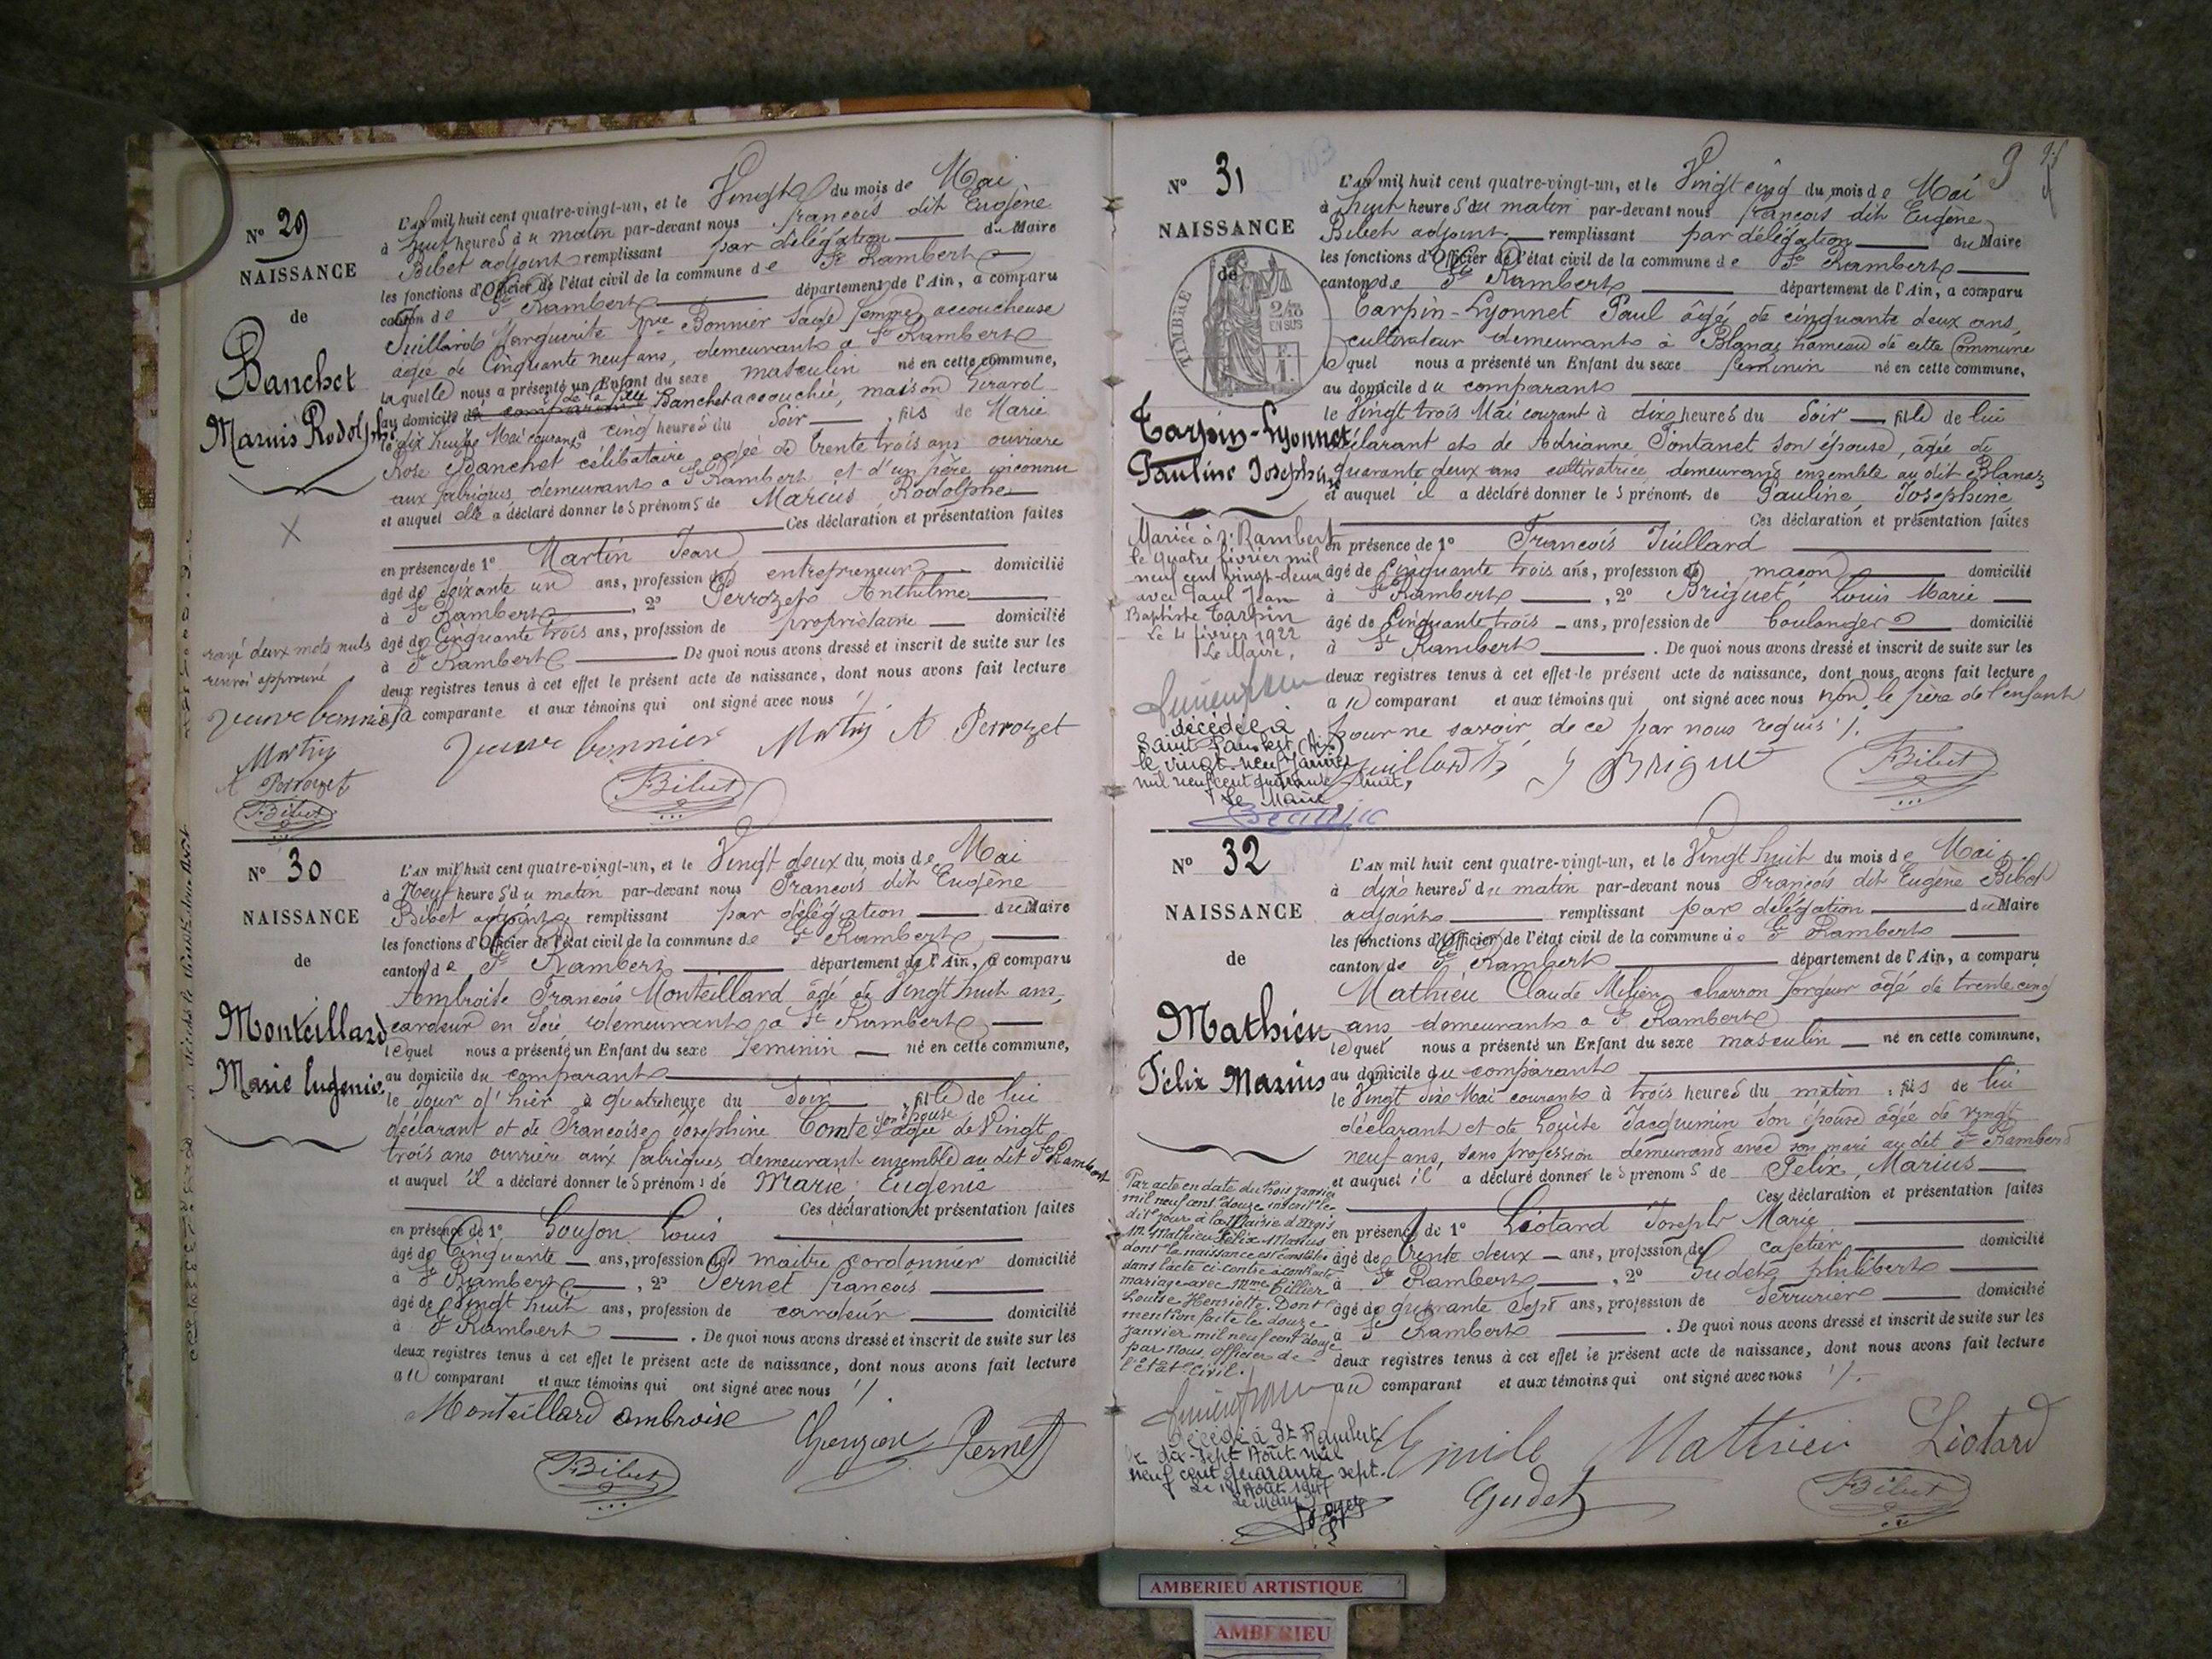 N° 29
NAISSANCE
de
Banchet
Marius Rodolphe
L'AN mil huit cent quatre-vingt-un, et le Vingt du mois de Mai
à huit heures du matin par-devant nous françois dit Eugène
Bibet adjoint remplissant par délégation du Maire
les fonctions d'Officier de l'état civil de la commune de St Rambert
canton de St Rambert département de l'Ain, a comparu
Juillard Marguerite Vve Bonnier sage femme accoucheuse
agée de Cinquante neuf ans, demeurant à St Rambert
laquelle nous a présenté un Enfant du sexe masculin né en cette commune,
au domicile du comparant de la fille Banchet accouchée, maison Girard
le dix huit Mai courant à cinq heures du Soir, fils de Marie
Rose Banchet célibataire agée de trente trois ans ouvriere
aux fabriques demeurant à St Rambert et d'un père inconnu
et auquel elle a déclaré donner les prénoms de Marius Rodolphe
Ces déclaration et présentation faites
en présence de 1° Martin Jean
âgé de Soixante un ans, profession de entrepreneur domicilié
à St Rambert, 2° Perrozet Anthelme
âgé de Cinquante trois ans, profession de propriétaire domicilié
à St Rambert De quoi nous avons dressé et inscrit de suite sur les
deux registres tenus à cet effet le présent acte de naissance, dont nous avons fait lecture
à la comparante et aux témoins qui ont signé avec nous
rayé deux mots nuls
renvoi approuvé
Martin
A Perrozet
Bibet
bonnier Martin A Perrozet
Bibet
N° 30
NAISSANCE
de
Monteillard
Marie Eugenie
L'AN mil huit cent quatre-vingt-un, et le Vingt deux du mois de Mai
à Neuf heures du matin par-devant nous François dit Eugène
Bibet adjoint remplissant par délégation du Maire
les fonctions d'Officier de l'état civil de la commune de St Rambert
canton de St Rambert département de l'Ain, a comparu
Ambroise François Monteillard âgé de Vingt huit ans,
cardeur en Soie, demeurant à St Rambert
lequel nous a présenté un Enfant du sexe féminin né en cette commune,
au domicile du comparant
le Jour d'hier à quatre heure du Soir, fille de lui
déclarant et de Françoise Josephine Comte son épouse agée de Vingt
trois ans ouvrière aux fabriques demeurant ensemble au dit St Rambert
et auquel il a déclaré donner les prénoms de Marie Eugenie
Ces déclaration et présentation faites
en présence de 1° Goujon Louis
âgé de Cinquante ans, profession de maitre cordonnier domicilié
à St Rambert, 2° Pernet françois
âgé de Vingt huit ans, profession de cardeur domicilié
à St Rambert. De quoi nous avons dressé et inscrit de suite sur les
deux registres tenus à cet effet le présent acte de naissance, dont nous avons fait lecture
au comparant et aux témoins qui ont signé avec nous
Monteillard ambroise
Goujon Pernet
Bibet
9
N° 31
NAISSANCE
de
TIMBRE
2/10 EN SUS
Tarpin-Lyonnet
Pauline Josephine
L'AN mil huit cent quatre-vingt-un, et le Vingt cinq du mois de Mai
à huit heures du matin par-devant nous françois dit Eugène
Bibet adjoint remplissant par délégation du Maire
les fonctions d'Officier de l'état civil de la commune de St Rambert
canton de St Rambert département de l'Ain, a comparu
Tarpin-Lyonnet Paul âgé de cinquante deux ans,
cultivateur demeurant à Blanaz hameau de cette Commune
lequel nous a présenté un Enfant du sexe féminin né en cette commune,
au domicile du comparant
le Vingt trois Mai courant à dix heures du Soir fille de lui
déclarant et de Adrianne Pontanet son épouse, âgée de
quarante deux ans cultivatrice, demeurant ensemble au dit Blanaz
et auquel il a déclaré donner les prénoms de Pauline Josephine
Ces déclaration et présentation faites
en présence de 1° François Juillard
âgé de Cinquante trois ans, profession de maçon domicilié
à St Rambert, 2° Briguet Louis Marie
âgé de Cinquante trois ans, profession de boulanger domicilié
à St Rambert. De quoi nous avons dressé et inscrit de suite sur les
deux registres tenus à cet effet le présent acte de naissance, dont nous avons fait lecture
au comparant et aux témoins qui ont signé avec nous non le père de l'enfant
pour ne savoir de ce par nous requis
Mariée à St Rambert
le quatre février mil
neuf cent vingt-deux
avec Paul Jean
Baptiste Tarpin
Le 4 février 1922
Le Maire,
décédée à
le vingt-neuf Janvier
mil neuf cent quarante huit,
Le Maire
Juillard
Bibet
N° 32
NAISSANCE
de
Mathieu
Félix Marius
L'AN mil huit cent quatre-vingt-un, et le Vingt huit du mois de Mai
à dix heures du matin par-devant nous François dit Eugène Bibet
adjoint remplissant par délégation du Maire
les fonctions d'Officier de l'état civil de la commune de St Rambert
canton de St Rambert département de l'Ain, a comparu
Mathieu Claude charron forgeur âgé de trente cinq
ans demeurant à St Rambert
lequel nous a présenté un Enfant du sexe masculin né en cette commune,
au domicile du comparant
le Vingt Six Mai courant à trois heures du matin, fils de lui
déclarant et de Louise Jacquemin son épouse âgée de vingt
neuf ans, sans profession demeurant avec son mari au dit St Rambert
et auquel il a déclaré donner les prénoms de Félix, Marius
Ces déclaration et présentation faites
en présence de 1° Léotard Joseph Marie
âgé de trente deux ans, profession de cafetier domicilié
à St Rambert, 2° Gudet philibert
âgé de quarante sept ans, profession de serrurier domicilié
à St Rambert. De quoi nous avons dressé et inscrit de suite sur les
deux registres tenus à cet effet le présent acte de naissance, dont nous avons fait lecture
au comparant et aux témoins qui ont signé avec nous
Par acte en date du trois janvier
mil neuf cent douze inscrit le
dit jour à la Mairie d'Argis
M. Mathieu Félix Marius
dont la naissance est constatée
dans l'acte ci-contre a contracté
mariage avec Mme Tillier
Louise Henriette. Dont
mention faite le douze
janvier mil neuf cent douze
par Nous, officier de
l'Etat civil.
Décédé à St Rambert
le dix-sept Août mil
neuf cent quarante sept.
Le 18 Août 1947
Le Maire
Emile Mathieu Léotard
Gudet
Bibet
AMBERIEU ARTISTIQUE
AMBERIEU